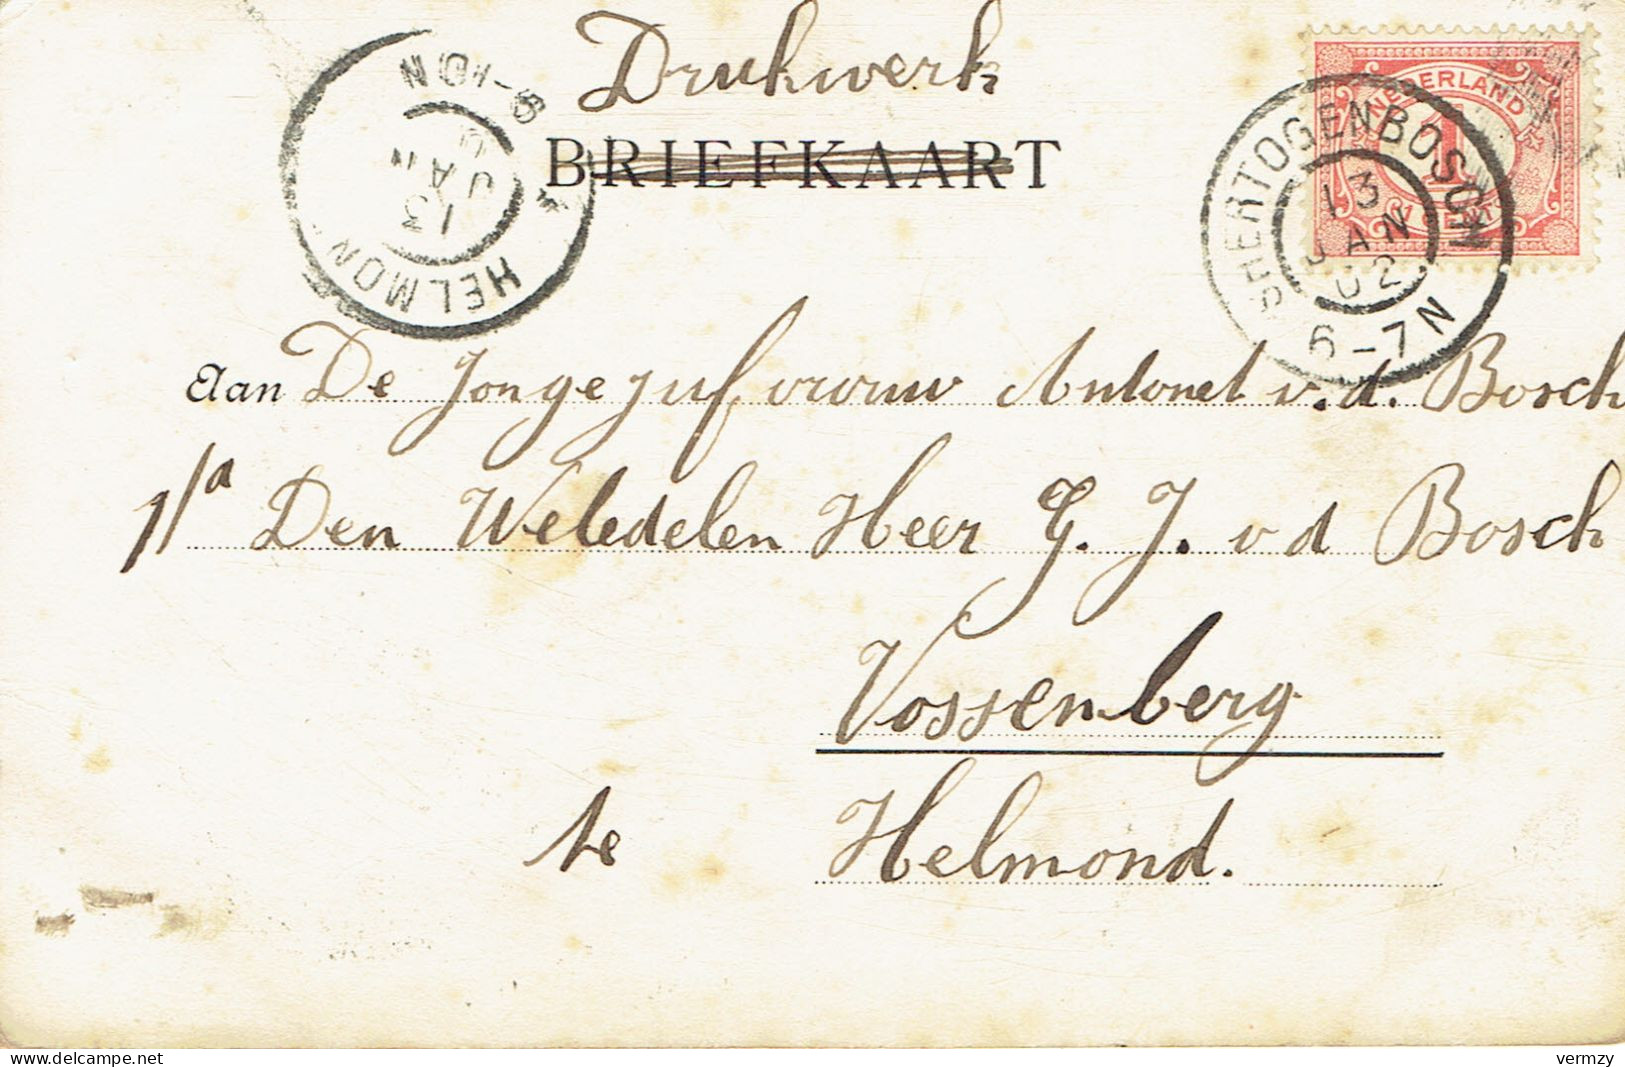 Drukwerk
BRIEFKAART
NEDERLAND
1
1 CENT
'S HERTOGENBOSCH
13
JAN
02
6-7N
HELMOND
13
JAN
8-10N
Aan De Jonge jufvrouw Antonet v.d. Bosch
p/a Den Weledelen Heer G. J. v d Bosch
Vossenberg
te Helmond.
www.delcampe.net
vermzy